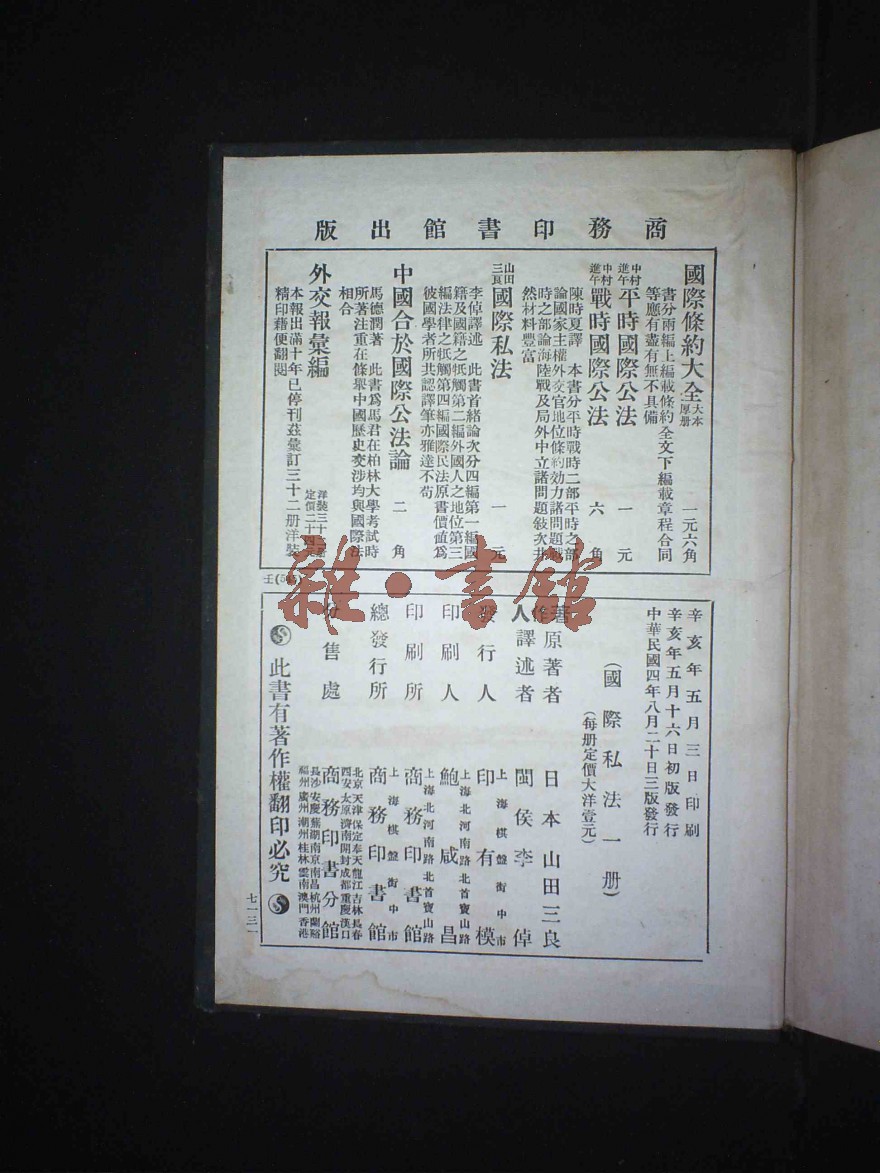 商務印書館出版
國際條約大全 大本厚册 一元六角
書分兩編上編載條約全文下編載章程合同
等應有盡有無不具備
中村進午 平時國際公法 一元
中村進午 戰時國際公法 六角
陳時夏譯 本書分平時戰時二部平時之部
論國家主權外交官地位條約効力諸問題戰
時之部論海陸戰及局外中立諸問題敍次井
然材料豐富
山田三良 國際私法 一元
李倬譯述 此書首緒論次分四編第一編國
籍及國籍之牴觸第二編外國人之地位第三
編法律之牴觸第四編國際民法原書價値爲
彼國學者所共認譯筆亦雅達不苟
中國合於國際公法論 二角
馬德潤著 此書爲馬君在柏林大學考試時
所著注重在條舉中國歷史交涉均與國際法
相合
外交報彙編
洋裝三十二册
定價二十四元
本報出滿十年已停刊茲彙訂三十二册洋裝
精印藉便翻閱
辛亥年五月三日印刷
辛亥年五月十六日初版發行
中華民國四年八月二十日三版發行
(國際私法一册)
(每册定價大洋壹元)
著作人
原著者 日本山田三良
譯述者 閩侯李倬
發行人 印有模
上海棋盤街中市
印刷人 鮑咸昌
上海北河南路北首寶山路
印刷所 商務印書館
上海北河南路北首寶山路
總發行所 商務印書館
上海棋盤街中市
分售處 商務印書分館
北京天津保定奉天龍江吉林長春
西安太原濟南開封成都重慶漢口
長沙安慶蕪湖南京南昌杭州蘭谿
福州廣州潮州桂林雲南澳門香港
此書有著作權翻印必究
七一三一
雜·書館